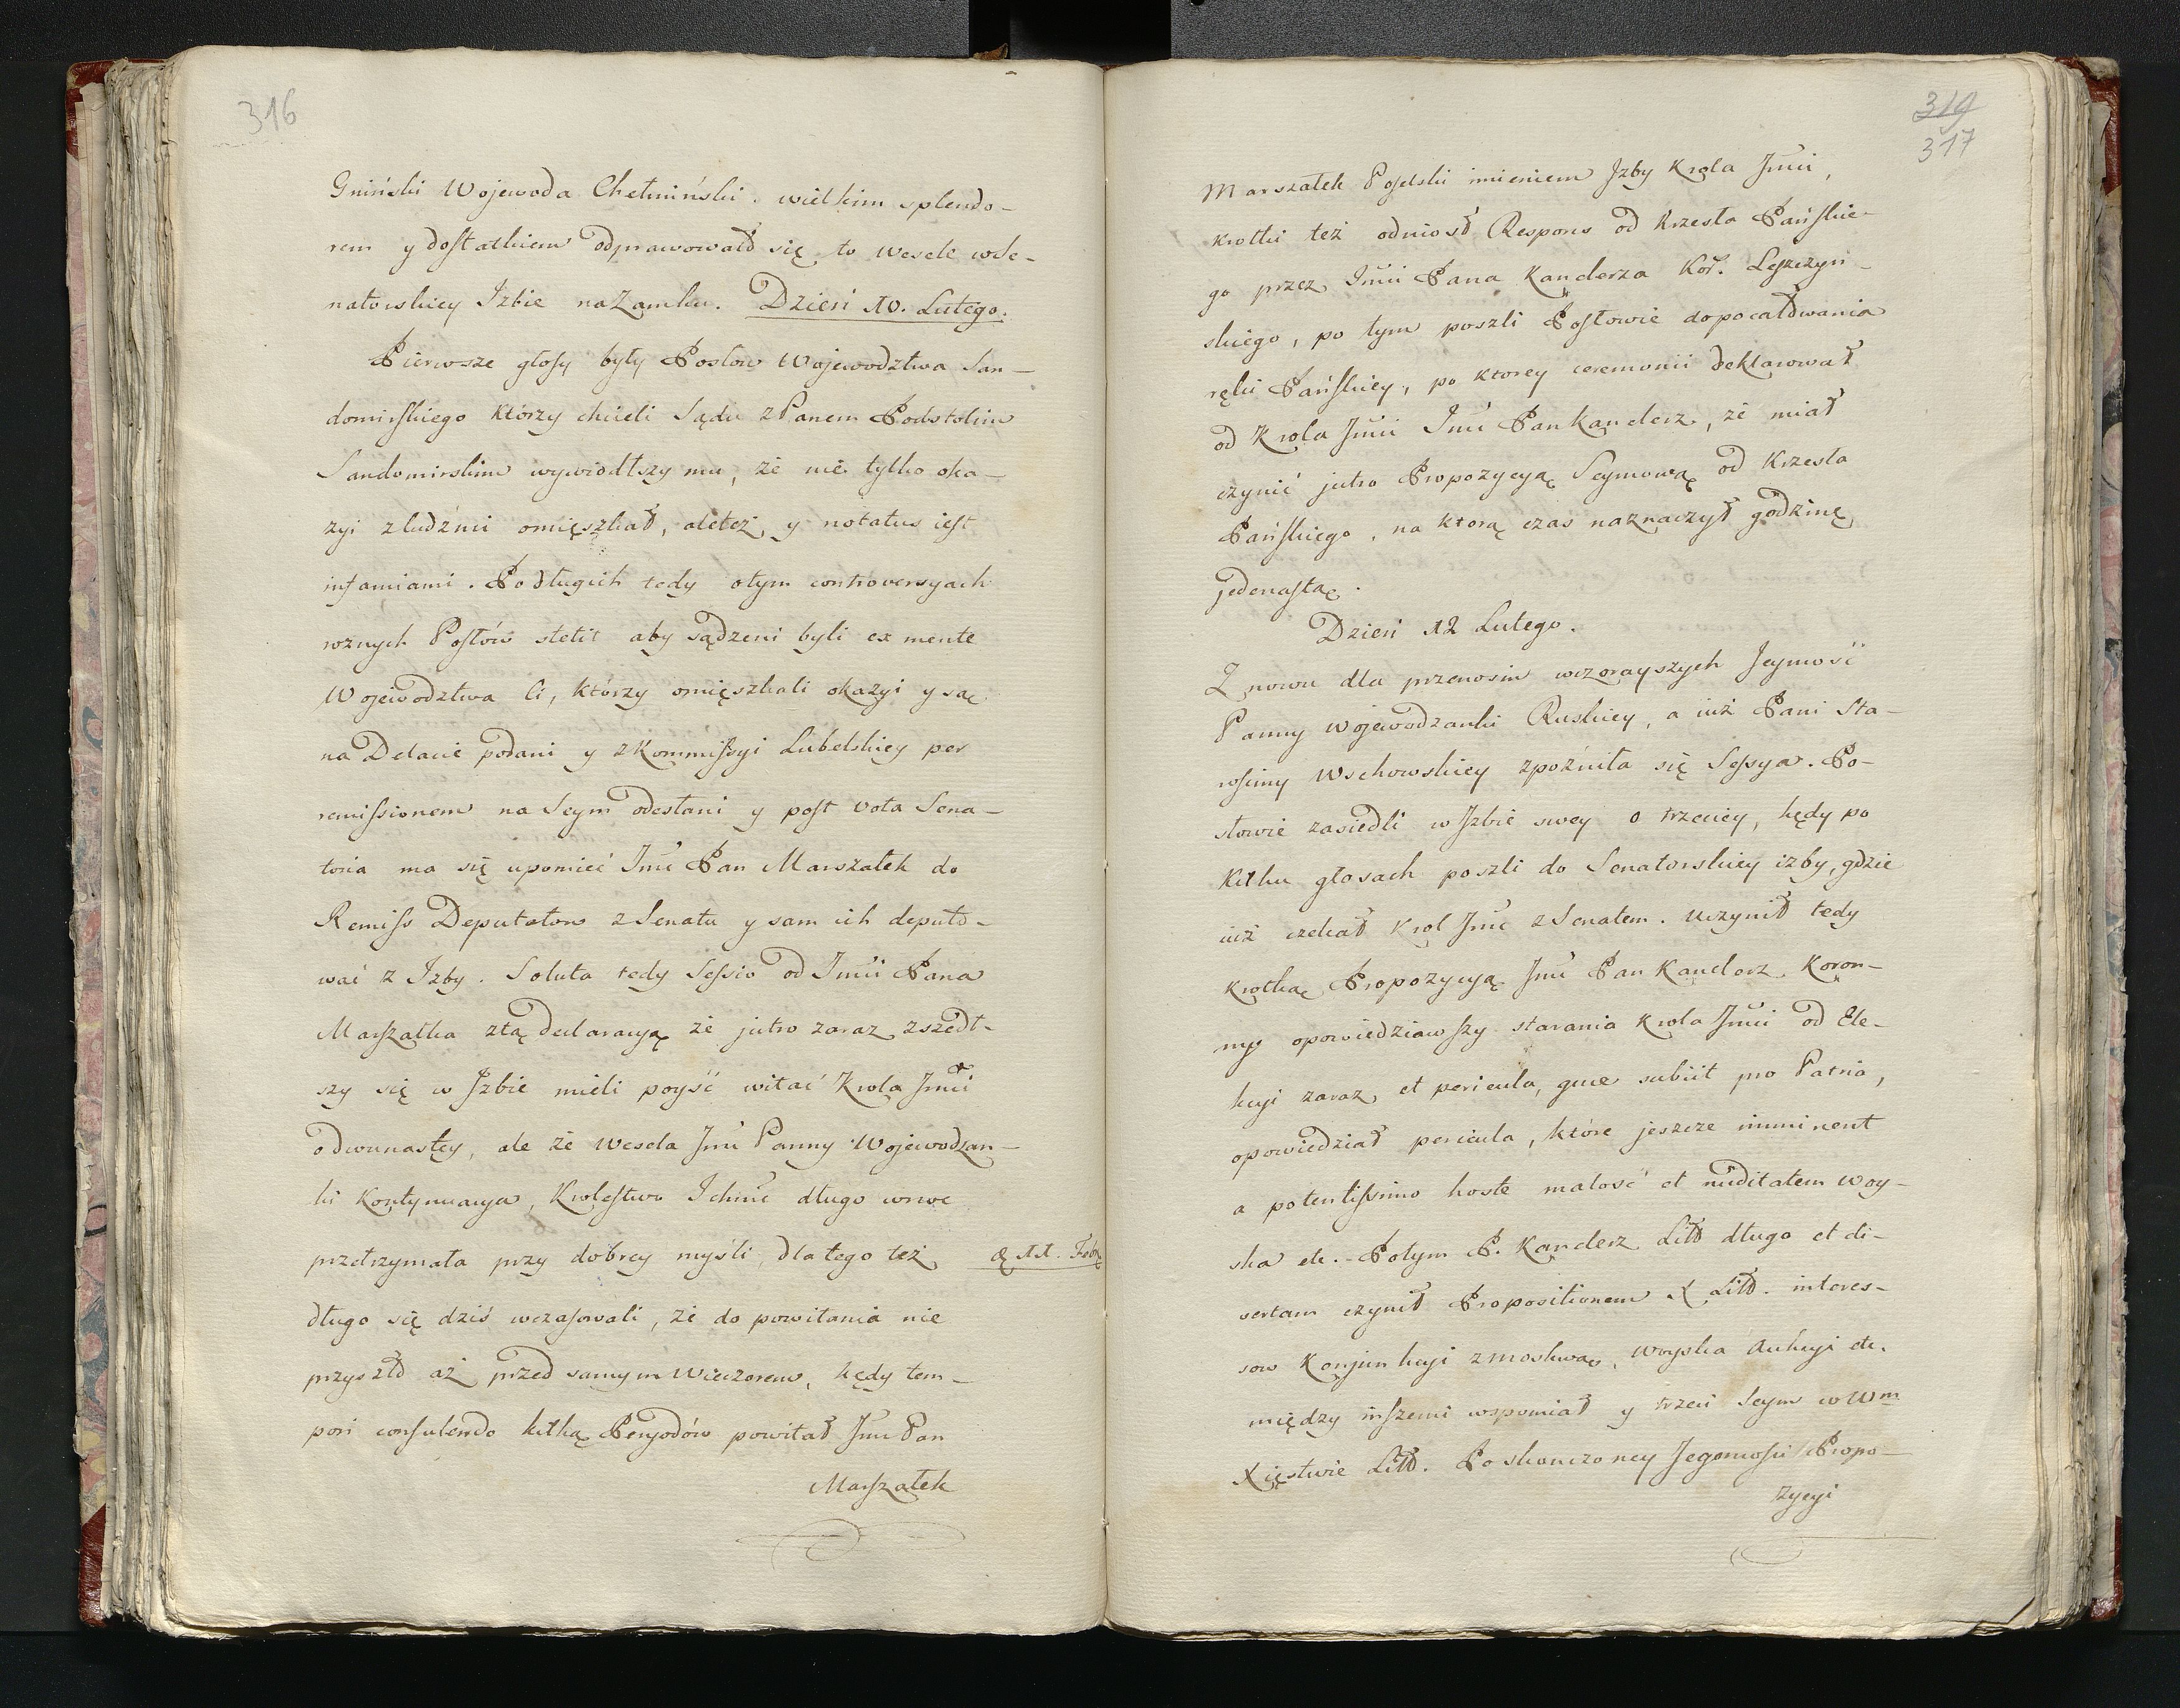 316
Gniński Wojewoda Chełmiński. wielkim splendo-
rem y dostatkiem odprawował się to wesele wSe-
natorskiey Izbie na Zamku. Dzień 10. Lutego.
Pierwsze głosy były Posłow Wojewodztwa San-
domirskiego którzy chcieli Sądu z Panem Podstolim
Sandomirskim wywiodłszy mu, że nie tylko oka-
zyi z ludźmi omięszkał, ale też y notatus iest
infamiami. Po długich tedy o tym controversyach
roznych Posłów stetit aby sądzeni byli ex mente
Wojewodztwa Ci, którzy omięszkali okazyi y są
na Delacie podani y z Kommissyi Lubelskiey per
remissionem na Seym odesłani y post vota Sena-
toria ma się upomieć Jmć Pan Marszałek do
Remiss Deputatow z Senatu y sam ich deputo-
wać z Izby. Soluta tedy Sessio od Jmći Pana
Marszałka z tą declaracyą że jutro zaraz zszedł-
szy się w Izbie mieli poyść witać Krola Jmći
o dwunastey, ale że Wesela Jmć Panny Wojewodzan-
ki kontynuacya, Krolestwo Ichmć długo w noc
przetrzymała przy dobrey myśli, dla tego też
d. 11. Febr.
długo się dziś wczasowali, że do powitania nie
przyszło aż przed samym wieczorem, kędy tem-
pori consulendo kilką Peryodów powitał Jmć Pan
Marszałek
319
317
Marszałek Poselski imieniem Izby Krola Jmći,
krotki też odniosł Respons od Krzesła Pańskie-
go przez Jmći Pana Kanclerza Kor. Leszczyń-
skiego, po tym poszli Posłowie do pocałowania
ręki Pańskiey, po ktorey ceremonii deklarował
od Krola Jmći Jmć Pan Kanclerz, że miał
czynić jutro Propozycyą Seymową od Krzesła
Pańskiego, na ktorą czas naznaczył godzinę
jedenastą.
Dzień 12 Lutego.
Z nowu dla przenosin wczorayszych Jeymość
Panny Wojewodzanki Ruskiey, a iuż Pani Sta-
rosciny Wschowskiey zpoźniła się Sessya. Po-
słowie zasiedli w Izbie swey o trzeciey, kędy po
kilku głosach poszli do Senatorskiey izby, gdzie
iuż czekał Krol Jmć z Senatem. Uczynił tedy
krotką Propozycyą Jmć Pan Kanclerz Koron-
ny opowiedziawszy starania Krola Jmći od Ele-
kcyi zaraz, et pericula, quae subiit pro Patria,
opowiedział pericula, które jeszcze imminent
a potentissimo hoste małość et nuditatem woy-
ska etc. Potym P. Kanclerz Litt długo et di-
sertam czynił Propositionem X Litt. interes-
sow Konjunkcyi z Moskwą, woyska Aukcyi etc.
między inszemi wspomiał y trzeci Seym w Wm
Xięstwie Litt. Po skonczoney Jegomosci Propo-
zycyi